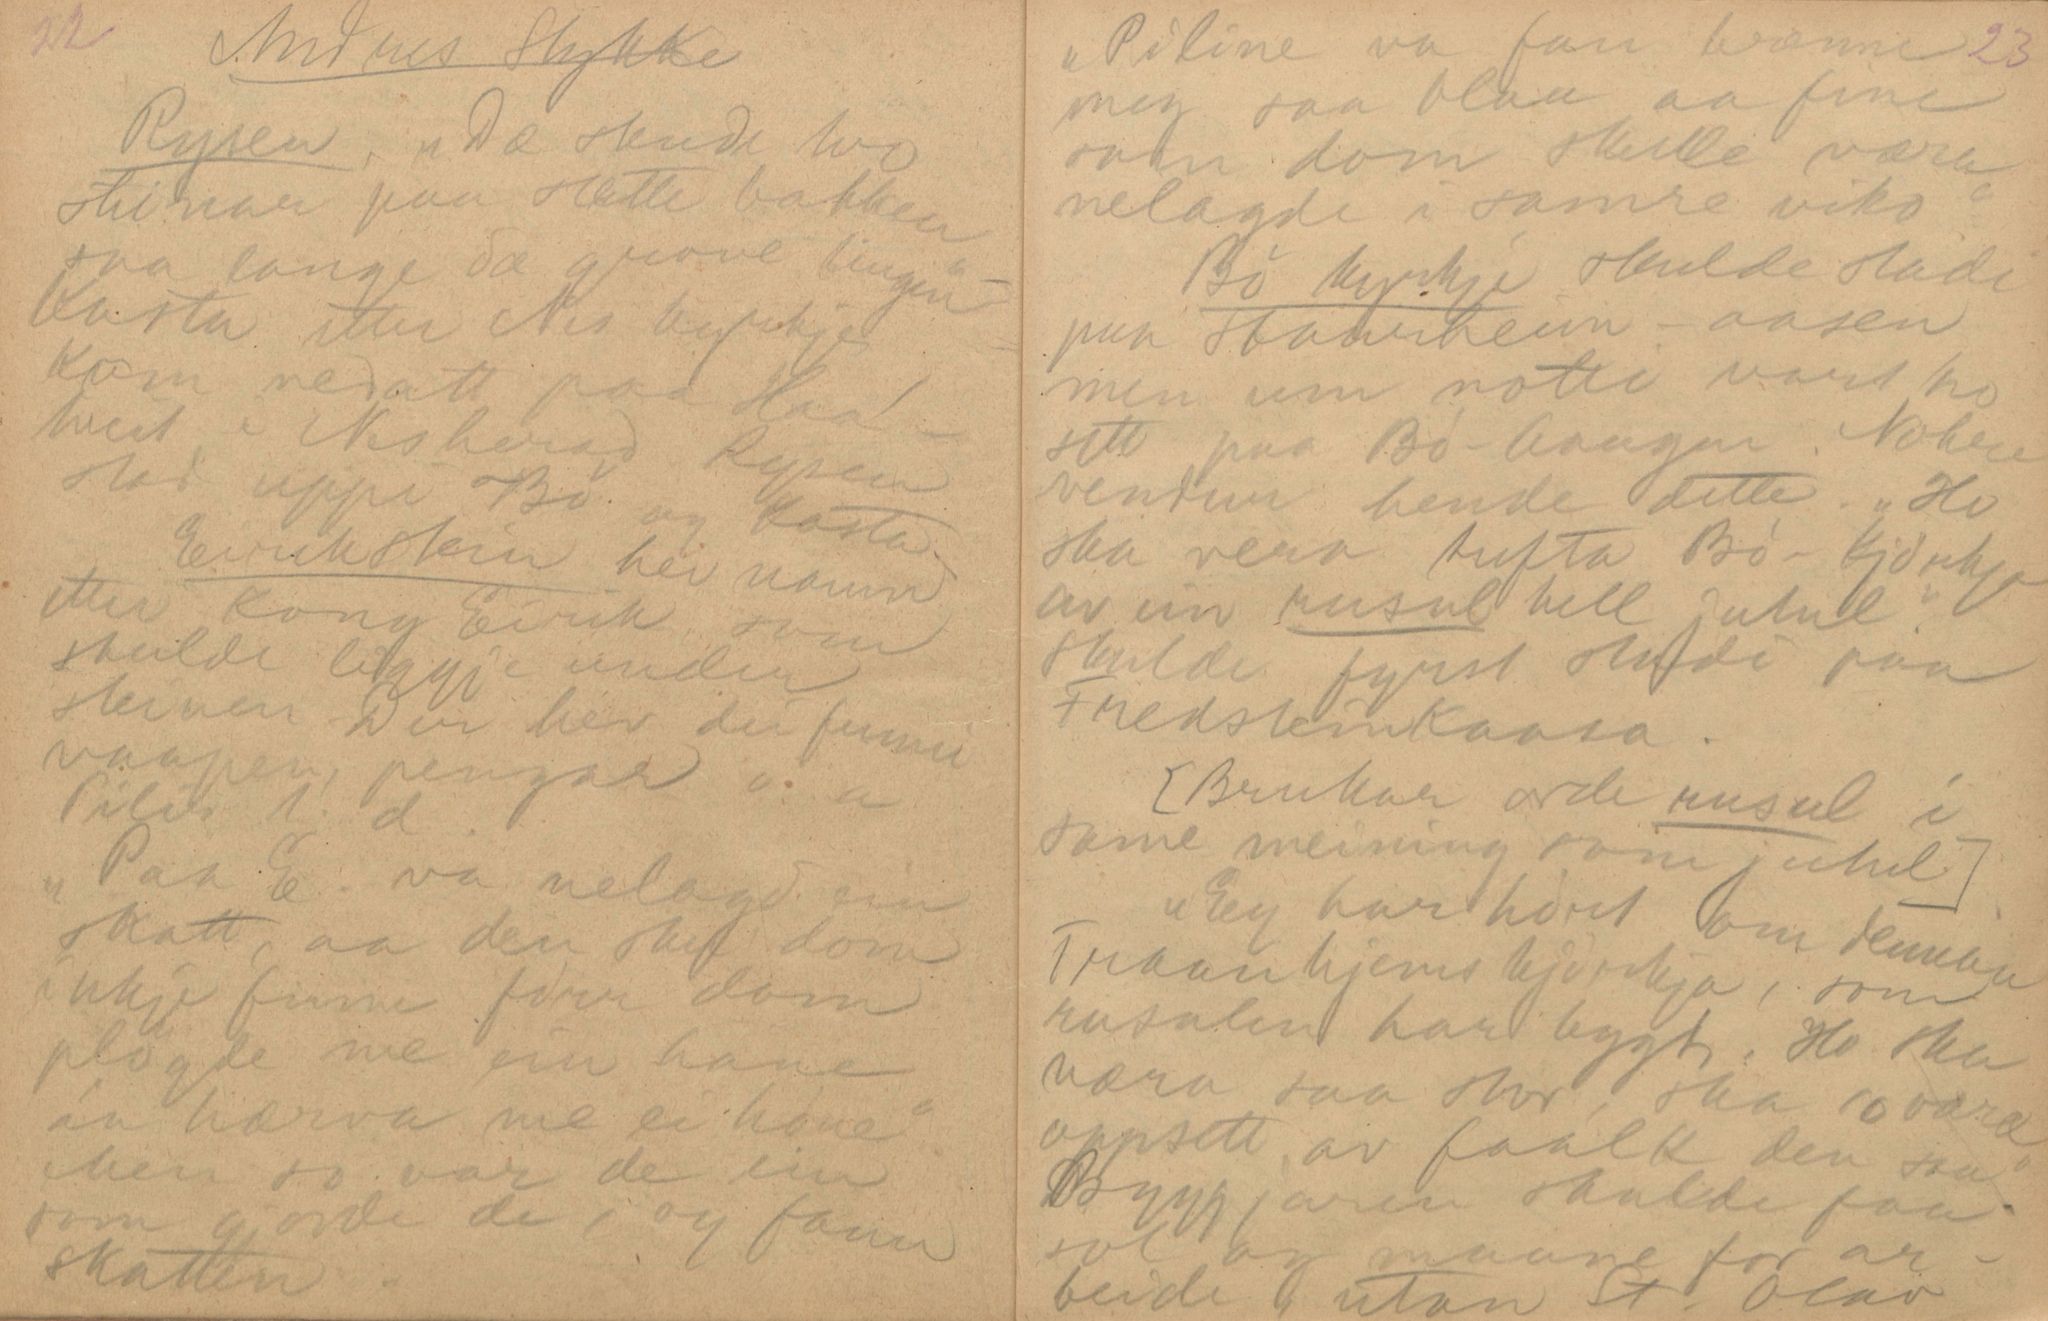 22
Andres Stykke
Rysen. „Dæ stende two
steinar paa slette bakken
saa lange dæ grove tingen"-
Kasta etter Nes kyrkje -
Kom nedatt paa Haa-
tveit i Nesherad Rysen
stod uppi Bö og kasta.
Eirikstein hev namn
etter Kong Eirik som
skulde liggje under
steinen. Der hev dei funni
vaapen, pengar o. a
Pilir t. d.
„Paa E. va nelagd ein
skatt, aa den sku dom
inkje finne förr dom
plögde me ein hane
aa hærva me ei höne"
Men so var de ein
som gjorde de, og fann
skatten.
23
„Piline va fan brænne
meg saa blaa aa fine
som dom skulle væra
nelagde i somre viko"
Bö kyrkje skulde stadi
paa Staurheim-aasen
men um notti vart ho
sett paa Bö-haugen. Nokre
vendur hende dette. „Ho
ska vera tufta Bö-kjörkja
av ein rusul hell jutul"
Skulde fyrst stadi paa
Fredsteinkaasa.
[Brukar orde rusul i
same meining som jutul]
„Eg har hört om denna
Traanhjems kjörkja, som
rusulen har bygt. Ho ska
væra saa stor, ska o væra
uppsett av faalk den saa"
Byggjaren skulde faa
sol og maane for ar-
beide, utan St. Olav